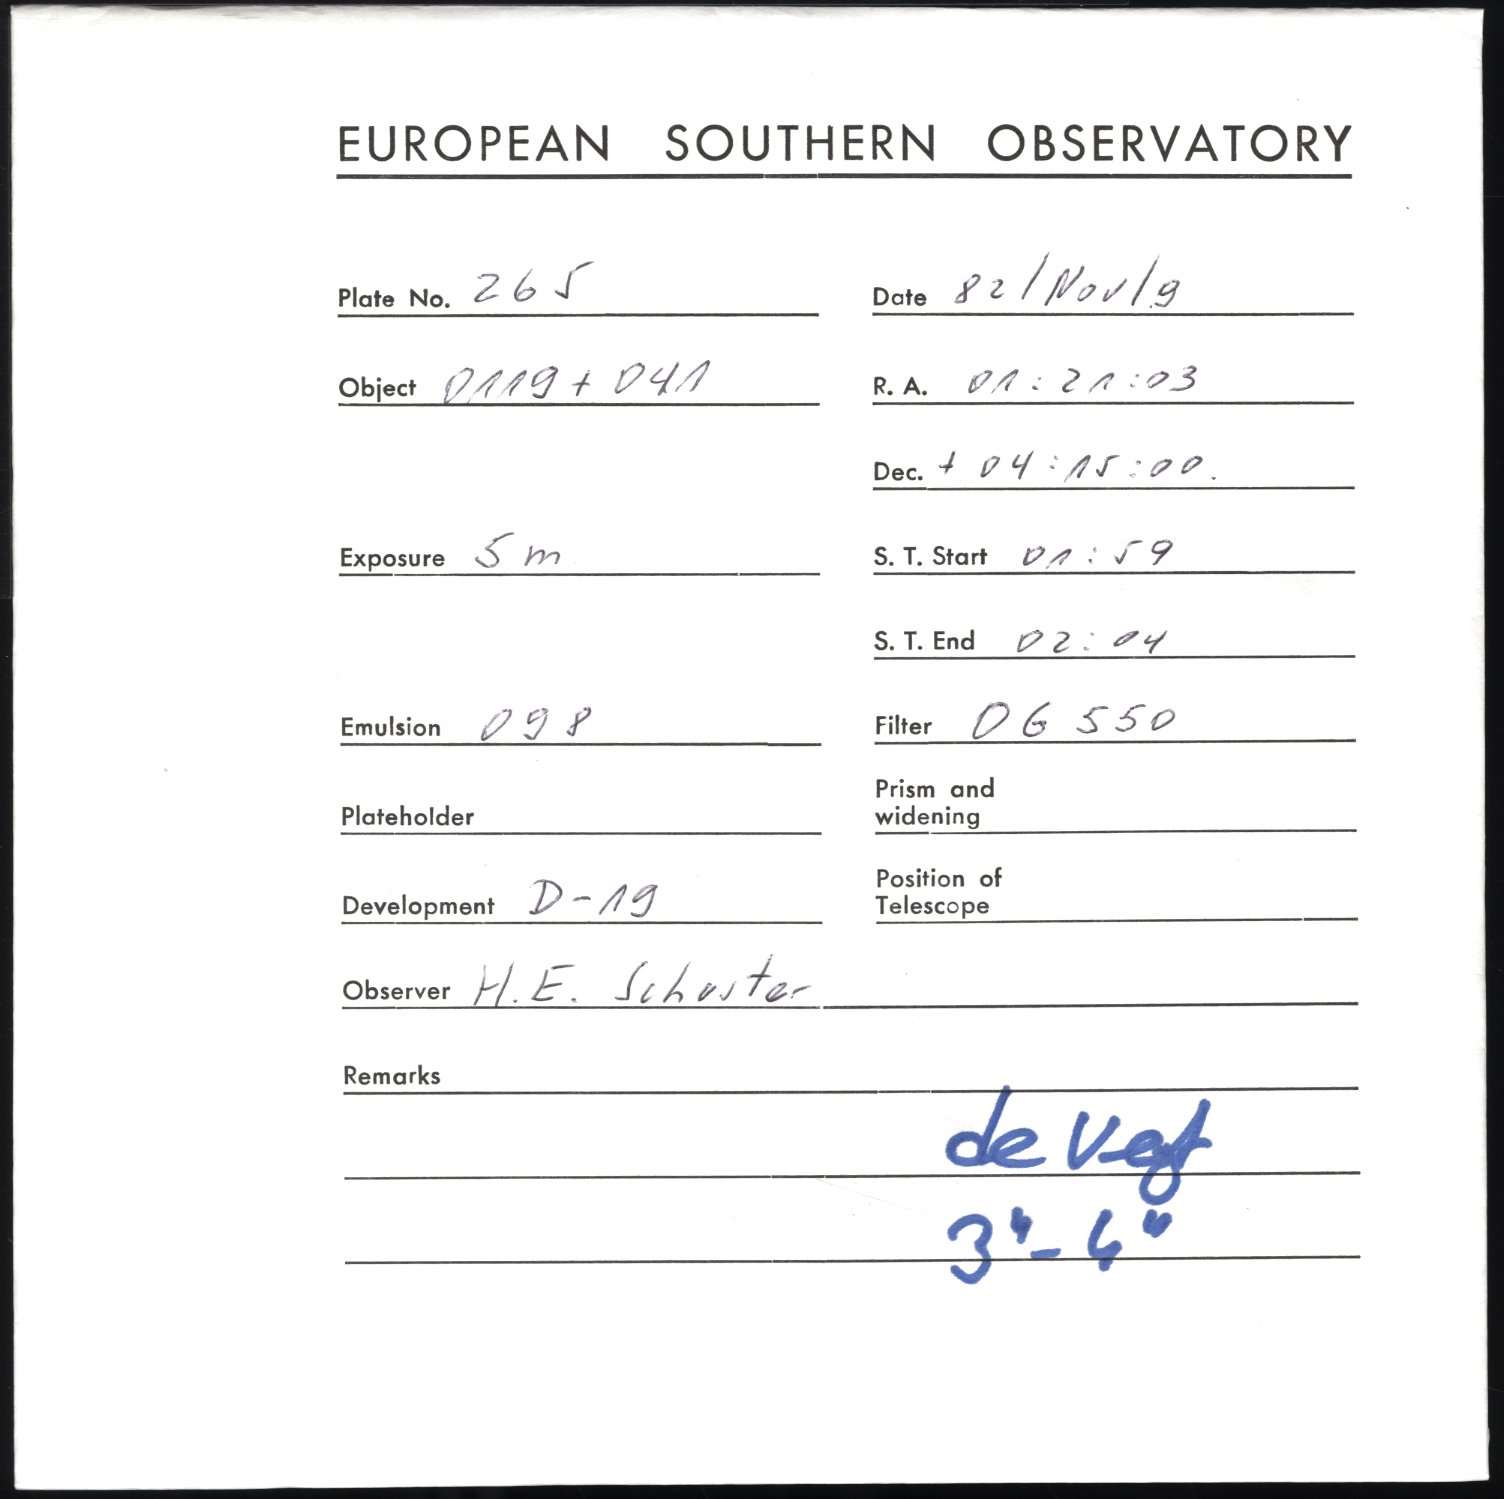 EUROPEAN SOUTHERN OBSERVATORY
Plate No. 265
Date 82/Nov/9
Object 0119+041
R. A. 01:21:03
Dec. + 04:15:00.
Exposure 5 m
S. T. Start 01:59
S. T. End 02:04
Emulsion 098
Filter OG 550
Plateholder
Prism and
widening
Development D-19
Position of
Telescope
Observer H.E. Schuster
Remarks
de Vegt
3"-4"